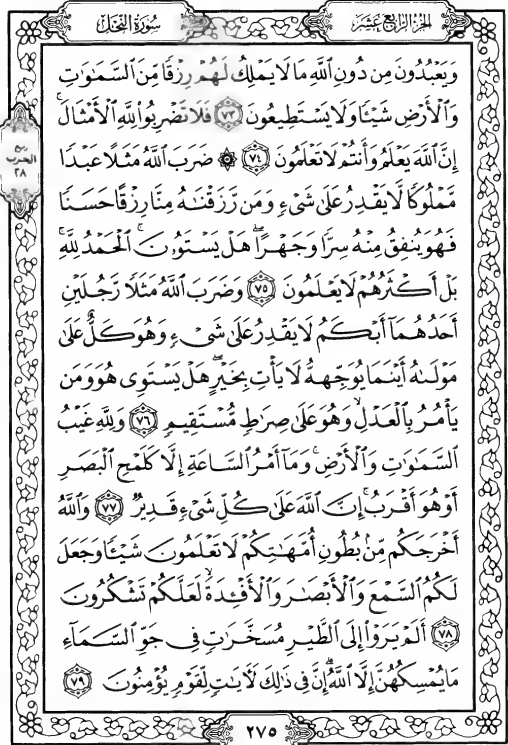 سُورَةُ النَّحْلِ الجُزْءُ الرَّابِعُ عَشَرَ
وَيَعْبُدُونَ مِن دُونِ ٱللَّهِ مَا لَا يَمْلِكُ لَهُمْ رِزْقًا مِّنَ ٱلسَّمَٰوَٰتِ
وَٱلْأَرْضِ شَيْـًٔا وَلَا يَسْتَطِيعُونَ ٧٣ فَلَا تَضْرِبُوا۟ لِلَّهِ ٱلْأَمْثَالَ ۚ
إِنَّ ٱللَّهَ يَعْلَمُ وَأَنتُمْ لَا تَعْلَمُونَ ٧٤ ۞ ضَرَبَ ٱللَّهُ مَثَلًا عَبْدًا
مَّمْلُوكًا لَّا يَقْدِرُ عَلَىٰ شَىْءٍ وَمَن رَّزَقْنَٰهُ مِنَّا رِزْقًا حَسَنًا
فَهُوَ يُنفِقُ مِنْهُ سِرًّا وَجَهْرًا ۖ هَلْ يَسْتَوُۥنَ ۚ ٱلْحَمْدُ لِلَّهِ ۚ
بَلْ أَكْثَرُهُمْ لَا يَعْلَمُونَ ٧٥ وَضَرَبَ ٱللَّهُ مَثَلًا رَّجُلَيْنِ
أَحَدُهُمَآ أَبْكَمُ لَا يَقْدِرُ عَلَىٰ شَىْءٍ وَهُوَ كَلٌّ عَلَىٰ
مَوْلَىٰهُ أَيْنَمَا يُوَجِّههُّ لَا يَأْتِ بِخَيْرٍ ۖ هَلْ يَسْتَوِى هُوَ وَمَن
يَأْمُرُ بِٱلْعَدْلِ ۙ وَهُوَ عَلَىٰ صِرَٰطٍ مُّسْتَقِيمٍ ٧٦ وَلِلَّهِ غَيْبُ
ٱلسَّمَٰوَٰتِ وَٱلْأَرْضِ ۚ وَمَآ أَمْرُ ٱلسَّاعَةِ إِلَّا كَلَمْحِ ٱلْبَصَرِ
أَوْ هُوَ أَقْرَبُ ۚ إِنَّ ٱللَّهَ عَلَىٰ كُلِّ شَىْءٍ قَدِيرٌ ٧٧ وَٱللَّهُ
أَخْرَجَكُم مِّنۢ بُطُونِ أُمَّهَٰتِكُمْ لَا تَعْلَمُونَ شَيْـًٔا وَجَعَلَ
لَكُمُ ٱلسَّمْعَ وَٱلْأَبْصَٰرَ وَٱلْأَفْـِٔدَةَ ۙ لَعَلَّكُمْ تَشْكُرُونَ
٧٨ أَلَمْ يَرَوْا۟ إِلَى ٱلطَّيْرِ مُسَخَّرَٰتٍ فِى جَوِّ ٱلسَّمَآءِ
مَا يُمْسِكُهُنَّ إِلَّا ٱللَّهُ ۗ إِنَّ فِى ذَٰلِكَ لَءَايَٰتٍ لِّقَوْمٍ يُؤْمِنُونَ ٧٩
ربع
الحزب
٢٨
٢٧٥